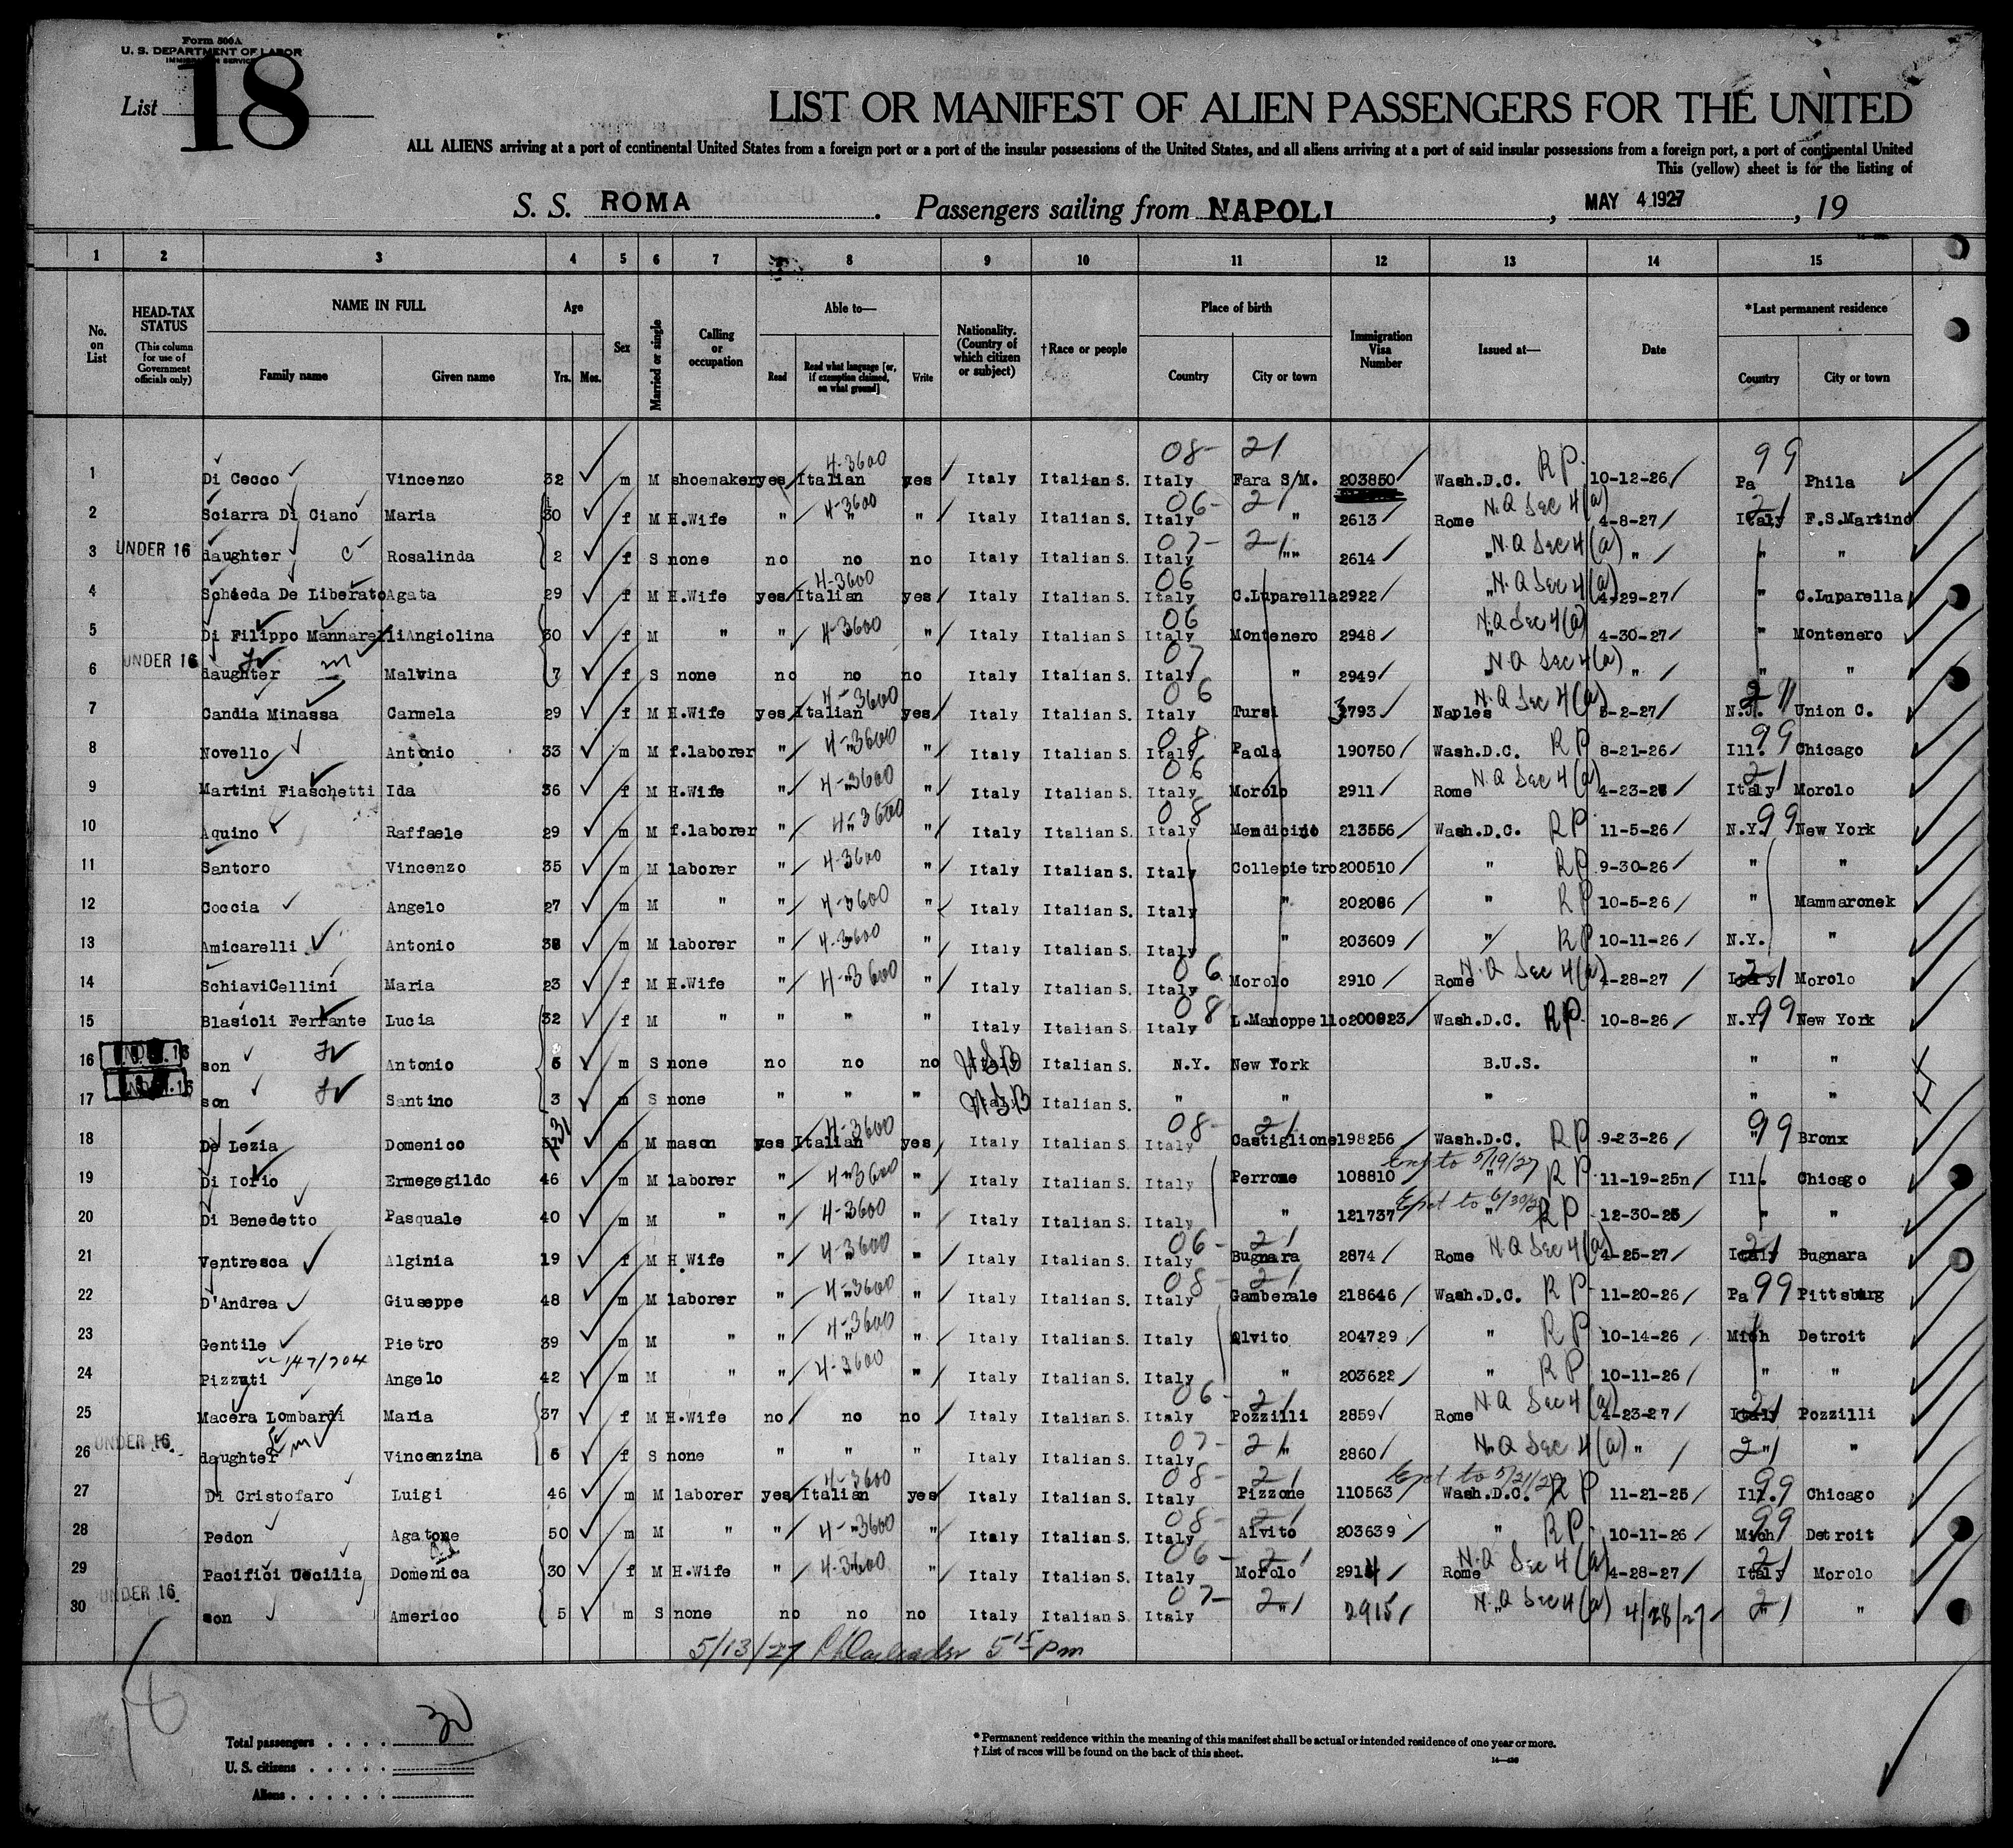 Form 500A
U. S. DEPARTMENT OF LABOR
IMMIGRATION SERVICE
List 18
LIST OR MANIFEST OF ALIEN PASSENGERS FOR THE UNITED
ALL ALIENS arriving at a port of continental United States from a foreign port or a port of the insular possessions of the United States, and all aliens arriving at a port of said insular possessions from a foreign port, a port of continental United
This (yellow) sheet is for the listing of
S. S. ROMA . Passengers sailing from NAPOLI , MAY 4 1927 , 19
1 2 3 4 5 6 7 8 9 10 11 12 13 14 15
No. on List
HEAD-TAX STATUS (This column for use of Government officials only)
NAME IN FULL Family name Given name
Age Yrs. Mos.
Sex
Married or single
Calling or occupation
Able to— Read Read what language [or, if exemption claimed, on what ground] Write
Nationality. (Country of which citizen or subject)
†Race or people
Place of birth Country City or town
Immigration Visa Number
Issued at—
Date
*Last permanent residence Country City or town
1 Di Cecco Vincenzo 32 m M shoemaker yes Italian 4-3600 yes Italy Italian S. Italy 08- 21 Fara S/M. 203850 Wash.D.C. RP 10-12-26 Pa 99 Phila
2 Sciarra Di Ciano Maria 30 f M H.Wife " " 4-3600 " Italy Italian S. Italy 06- 21 " 2613 Rome N.Q Sec 4(a) 4-8-27 Italy 21 F.S.Martino
3 UNDER 16 daughter C Rosalinda 2 f S none no no no Italy Italian S. Italy 07- 21 "" 2614 " N.Q Sec 4(a) " " "
4 Schieda De Liberato Agata 29 f M H.Wife yes Italian 4-3600 yes Italy Italian S. Italy 06 C.Luparella 2922 " N.Q Sec 4(a) 4-29-27 " C.Luparella
5 Di Filippo Mannarelli Angiolina 30 f M " " 4-3600 " Italy Italian S. Italy 06 Montenero 2948 " N.Q Sec 4(a) 4-30-27 " Montenero
6 UNDER 16 daughter m Malvina 7 f S none no no no Italy Italian S. Italy 07 " 2949 " N.Q Sec 4(a) " " "
7 Candia Minassa Carmela 29 f M H.Wife yes Italian 4-3600 yes Italy Italian S. Italy 06 Tursi 3793 Naples N.Q Sec 4(a) 5-2-27 N.J. 21 Union C.
8 Novello Antonio 33 m M f.laborer " " 4-3600 " Italy Italian S. Italy 08 Paola 190750 Wash.D.C. RP 8-21-26 Ill. 99 Chicago
9 Martini Fiaschetti Ida 36 f M H.Wife " " 4-3600 " Italy Italian S. Italy 06 Morolo 2911 Rome N.Q Sec 4(a) 4-23-27 Italy 21 Morolo
10 Aquino Raffaele 29 m M f.laborer " " 4-3600 " Italy Italian S. Italy 08 Mendicino 213556 Wash.D.C. RP 11-5-26 N.Y. 99 New York
11 Santoro Vincenzo 35 m M laborer " 4-3600 " Italy Italian S. Italy Collepietro 200510 " RP 9-30-26 " "
12 Coccia Angelo 27 m M " " 4-3600 " Italy Italian S. Italy " 202086 " RP 10-5-26 " Mammaronek
13 Amicarelli Antonio 38 m M laborer " 4-3600 " Italy Italian S. Italy " 203609 " RP 10-11-26 N.Y. "
14 SchiaviCellini Maria 23 f M H.Wife " " 4-3600 " Italy Italian S. Italy 06 Morolo 2910 Rome N.Q Sec 4(a) 4-28-27 Italy 21 Morolo
15 Blasioli Ferrante Lucia 32 f M " " " " Italy Italian S. Italy 08 L.Manoppello 200823 Wash.D.C. RP 10-8-26 N.Y. 99 New York
16 UNDER 16 son Antonio 5 m S none no no no Italy USB Italian S. N.Y. New York B.U.S. " "
17 UNDER 16 son Santino 3 m S none " " " Italy USB Italian S. " " " " "
18 De Lezia Domenico 31 m M mason yes Italian 4-3600 yes Italy Italian S. Italy 08- 21 Castiglione 198256 Wash.D.C. RP 9-23-26 " 99 Bronx
19 Di Iorio Ermegegildo 46 m M laborer " " 4-3600 " Italy Italian S. Italy Perrone 108810 " to 5/19/27 RP 11-19-25n Ill. Chicago
20 Di Benedetto Pasquale 40 m M " " 4-3600 " Italy Italian S. Italy " 121737 " to 6/30/27 RP 12-30-25 " "
21 Ventresca Alginia 19 f M H.Wife " 4-3600 " Italy Italian S. Italy 06- 21 Bugnara 2874 Rome N.Q Sec 4(a) 4-25-27 Italy 21 Bugnara
22 D'Andrea Giuseppe 48 m M laborer " " 4-3600 " Italy Italian S. Italy 08- 21 Gamberale 218646 Wash.D.C. RP 11-20-26 Pa 99 Pittsburg
23 Gentile Pietro 39 m M " " " 4-3600 " Italy Italian S. Italy Alvito 204729 " RP 10-14-26 Mich Detroit
147/204
24 Pizzuti Angelo 42 m M " " 4-3600 " Italy Italian S. Italy " 203622 " RP 10-11-26 " "
25 Macera Lombardi Maria 37 f M H.Wife no no no Italy Italian S. Italy 06- 21 Pozzilli 2859 Rome N.Q Sec 4(a) 4-23-27 Italy 21 Pozzilli
26 UNDER 16 daughter m Vincenzina 5 f S none " " " Italy Italian S. Italy 07- 21 " 2860 " N.Q Sec 4(a) " " 21 "
27 Di Cristofaro Luigi 46 m M laborer yes Italian 4-3600 yes Italy Italian S. Italy 08- 21 Pizzone 110563 Wash.D.C. to 5/21/27 RP 11-21-25 Ill. 99 Chicago
28 Pedon Agatone 50 m M " " " 4-3600 " Italy Italian S. Italy 08- 21 Alvito 203639 " RP 10-11-26 Mich 99 Detroit
29 Pacifici Cecilia Domenica 30 f M H.Wife " " 4-3600 " Italy Italian S. Italy 06- 21 Morolo 2914 Rome N.Q Sec 4(a) 4-28-27 Italy 21 Morolo
30 UNDER 16 son Americo 5 m S none no no no Italy Italian S. Italy 07- 21 " 2915 " N.Q Sec 4(a) 4/28/27 " 21 "
5/13/27 5 15 pm
Total passengers . . . . 30
U. S. citizens . . . . .
Aliens . . . . . .
* Permanent residence within the meaning of this manifest shall be actual or intended residence of one year or more.
† List of races will be found on the back of this sheet.